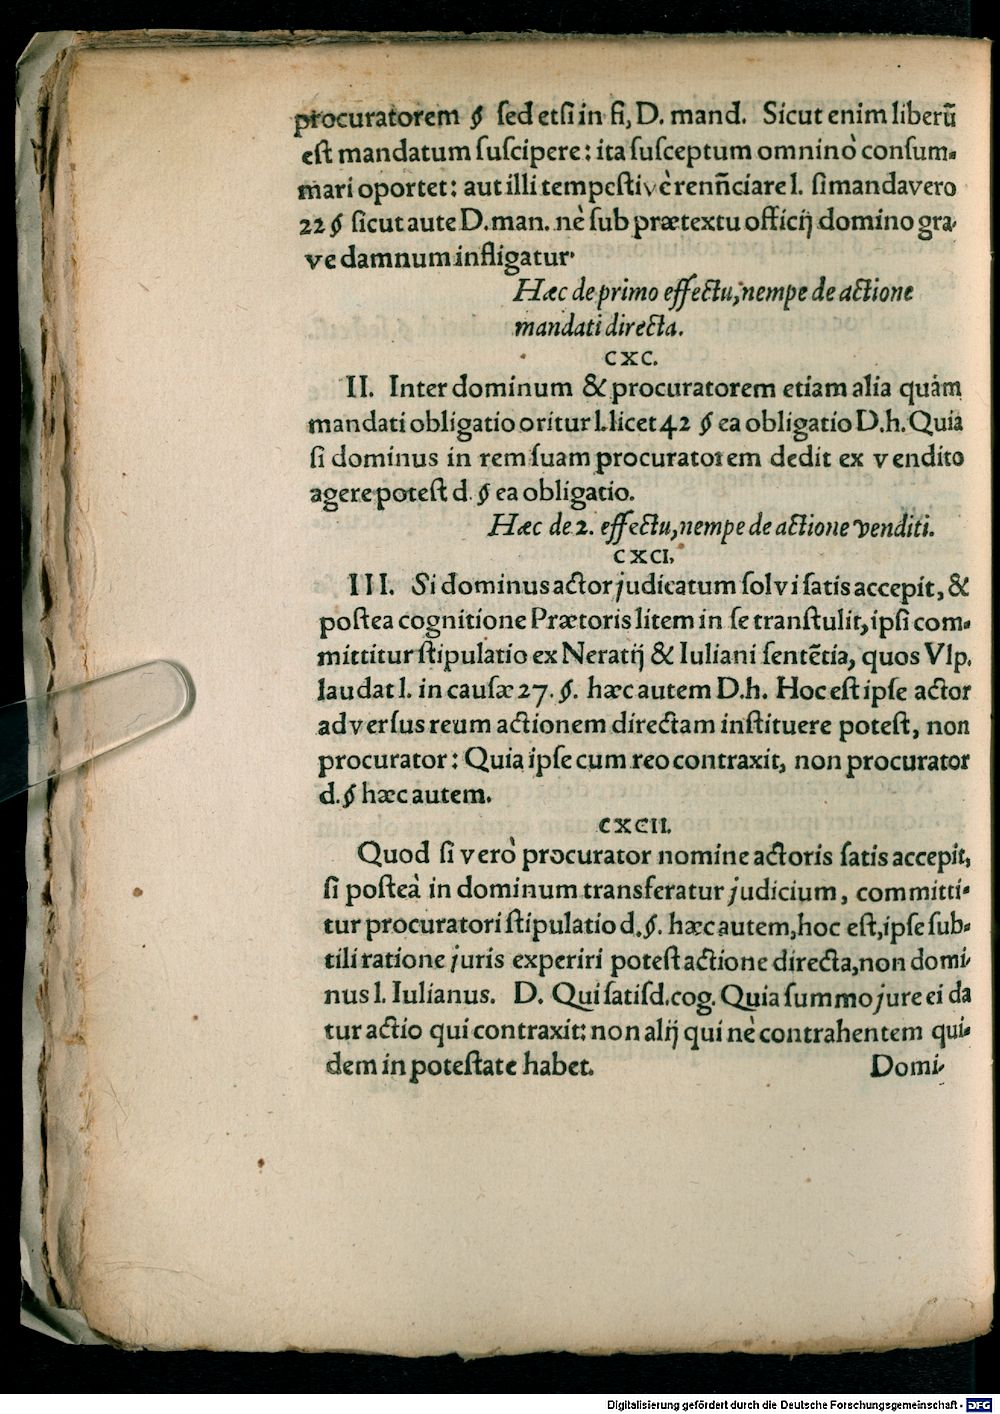 procuratorem § sed etsi in fi, D. mand. Sicut enim liberũ
est mandatum suscipere: ita susceptum omninò consum-
mari oportet: aut illi tempestivè renñciare l. si mandavero
22 § sicut aute D. man. nè sub prætextu officij domino gra-
ve damnum infligatur.
Hæc de primo effectu, nempe de actione
mandati directa.
CXC.
II. Inter dominum & procuratorem etiam alia quàm
mandati obligatio oritur l. licet 42 § ea obligatio D. h. Quia
si dominus in rem suam procuratorem dedit ex vendito
agere potest d. § ea obligatio.
Hæc de 2. effectu, nempe de actione venditi.
CXCI.
III. Si dominus actor judicatum solvi satis accepit, &
postea cognitione Prætoris litem in se transtulit, ipsi com-
mittitur stipulatio ex Neratij & Iuliani sentẽtia, quos Vlp.
laudat l. in causæ 27. §. hæc autem D. h. Hoc est ipse actor
adversus reum actionem directam instituere potest, non
procurator: Quia ipse cum reo contraxit, non procurator
d. § hæc autem.
CXCII.
Quod si verò procurator nomine actoris satis accepit,
si posteà in dominum transferatur judicium, committi-
tur procuratori stipulatio d. §. hæc autem, hoc est, ipse sub-
tili ratione juris experiri potest actione directa, non domi-
nus l. Iulianus. D. Qui satisd. cog. Quia summo jure ei da
tur actio qui contraxit: non alij qui nè contrahentem qui-
dem in potestate habet. Domi-
Digitalisierung gefördert durch die Deutsche Forschungsgemeinschaft - DFG